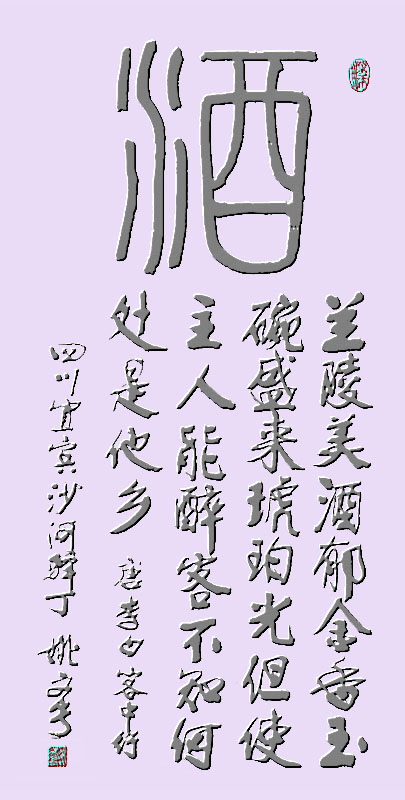 酒
兰陵美酒郁金香玉
碗盛来琥珀光但使
主人能醉客不知何
处是他乡 唐李白客中行
四川宜宾沙河驿丁 姚